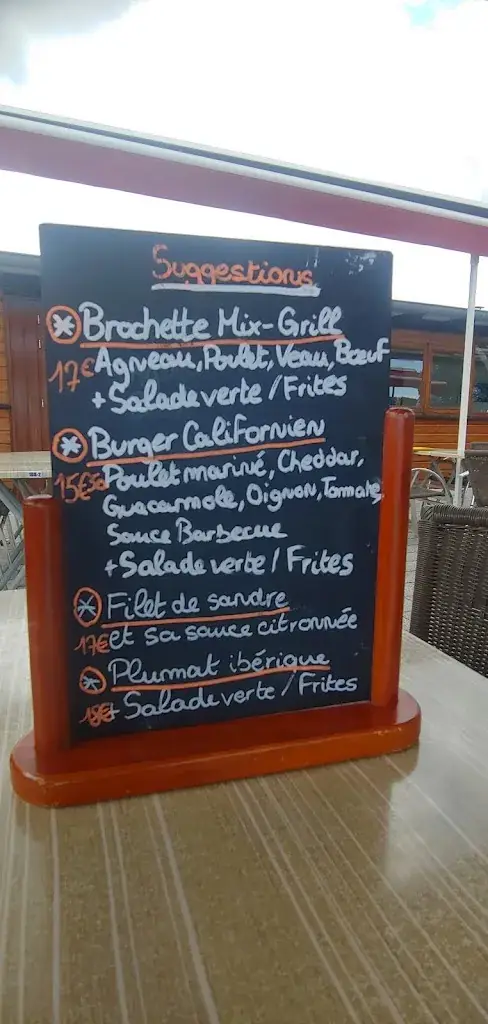 Suggestions
Brochette Mix-Grill
17€ Agneau, Poulet, Veau, Bœuf
+ Salade verte / Frites
Burger Californien
15€50 Poulet mariné, Cheddar,
Guacarmole, Oignon, Tomate,
Sauce Barbecue
+ Salade verte / Frites
Filet de sandre
17€ et sa sauce citronnée
Plumat ibérique
18€ + Salade verte / Frites